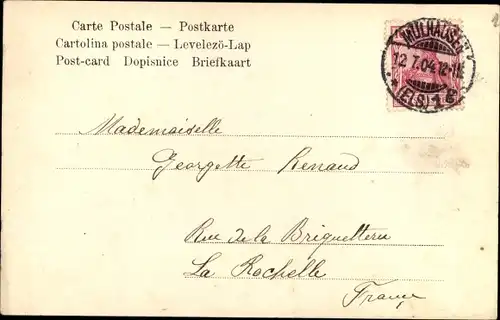 Carte Postale — Postkarte
Cartolina postale — Levelező-Lap
Post-card Dopisnice Briefkaart
MÜLHAUSEN
12.7.04.12-1N.
* (ELS) 1 g
Mademoiselle
Georgette Renaud
Rue de la Briquetterie
La Rochelle
France